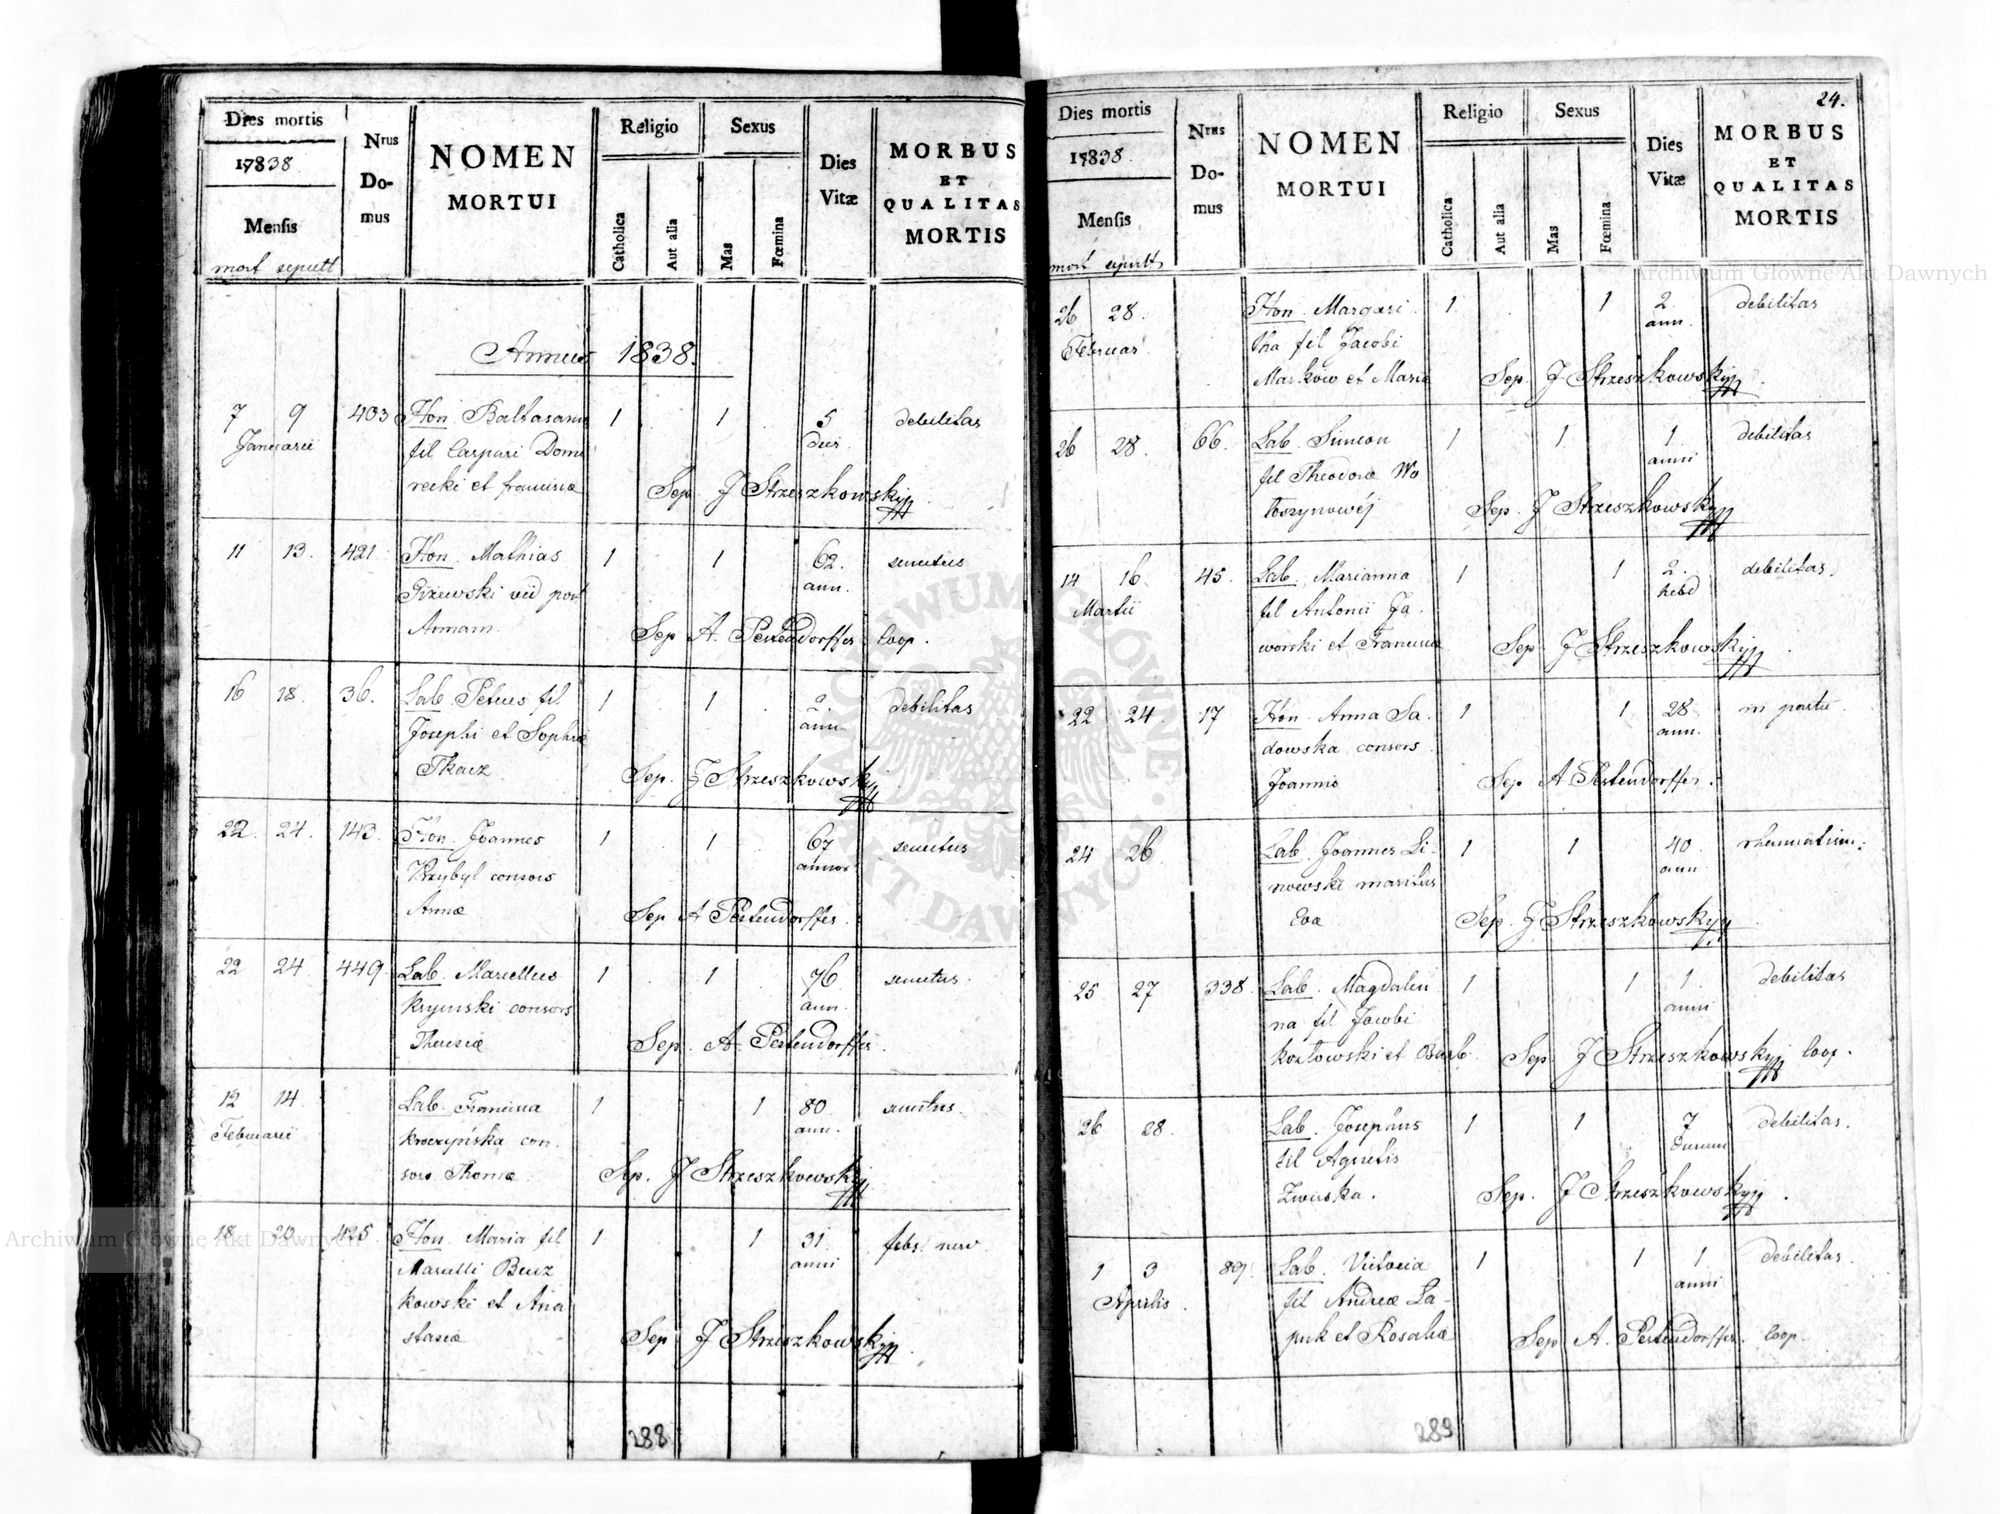 Dies mortis
Nrus
Do-
mus
NOMEN
MORTUI
Religio
Sexus
Dies
Vitæ
MORBUS
ET
QUALITAS
MORTIS
17838
Mensis
mort sepult
Catholica
Aut alia
Mas
Fœmina
Annus 1838.
7 9 403 Hon. Baltasarus 1 1 5 debilitas
Januarii fil Caspari Domi dier.
recki et francisca Sep J Strzeszkowski
11 13. 421 Hon. Mathias 1 1 62. senectus
vid post ann.
Annam. Sep A. Pertendorffer Coop.
16 18. 36. Lab. Petrus fil 1 1 2. debilitas
Josephi et Sophiæ ann.
Tkacz Sep. J Strzeszkowski
22. 24. 143. Hon. Joannes 1 1 67 senectus
Krzybyl consors annor
Annæ Sep A Pertendorffer.
22 24. 449 Lab. Marcellus 1 1 76 senectus.
Krymski consors ann.
Theresiæ Sep. A. Pertendorffer.
12 14. Lab. Francisca 1 1 80 senectus.
Februarii Kroczyńska con- ann.
sors. Thomæ Sep. J Strzeszkowski
18 20 425 Hon. Maria fil 1 1 31 febr. nerv.
Marcelli Benz anni
kowski et Ana
stasiæ Sep J Strzeszkowski
288
24.
Dies mortis
Nrus
Do-
mus
NOMEN
MORTUI
Religio
Sexus
Dies
Vitæ
MORBUS
ET
QUALITAS
MORTIS
17838.
Mensis
mort sepult
Catholica
Aut alia
Mas
Fœmina
26 28. Hon. Margari 1. 1 2 debilitas
Februar. tha fil Jacobi ann.
Marków et Maria Sep. J Strzeszkowski
26 28. 66. Lab. Simeon 1 1. 1. debilitas
fil Theodoræ Wo anni
łoszynowéj Sep. J Strzeszkowski
14 16. 45. Lab. Marianna 1 1 2. debilitas.
Martii fil Antonii Ja. hebd
worski et Francisca Sep. J Strzeszkowski
22 24. 17 Hon. Anna Sa. 1 1 28 in partu
dowska consors ann.
Joannis Sep A Pertendorffer.
24 26 Lab. Joannes Li- 1 1 40
nowski maritus ann
Eva Sep. J Strzeszkowski
25 27 338. Lab. Magdale 1 1 1 debilitas
na fil Jacobi anni
Kozłowski et Barb. Sep J Strzeszkowski Coop.
26 28. Lab. Josephus 1 1 7 debilitas.
fil Agnetis dierum
Sep. J Strzeszkowski
1 3 89. Lab. Victoria 1 1 1 debilitas.
Aprilis. fil Andreæ La- anni
puk et Rosaliæ Sep A. Pertendorffer. Coop.
289
Archiwum Główne Akt Dawnych
Archiwum Główne Akt Dawnych
ARCHIWUM GŁÓWNE AKT DAWNYCH